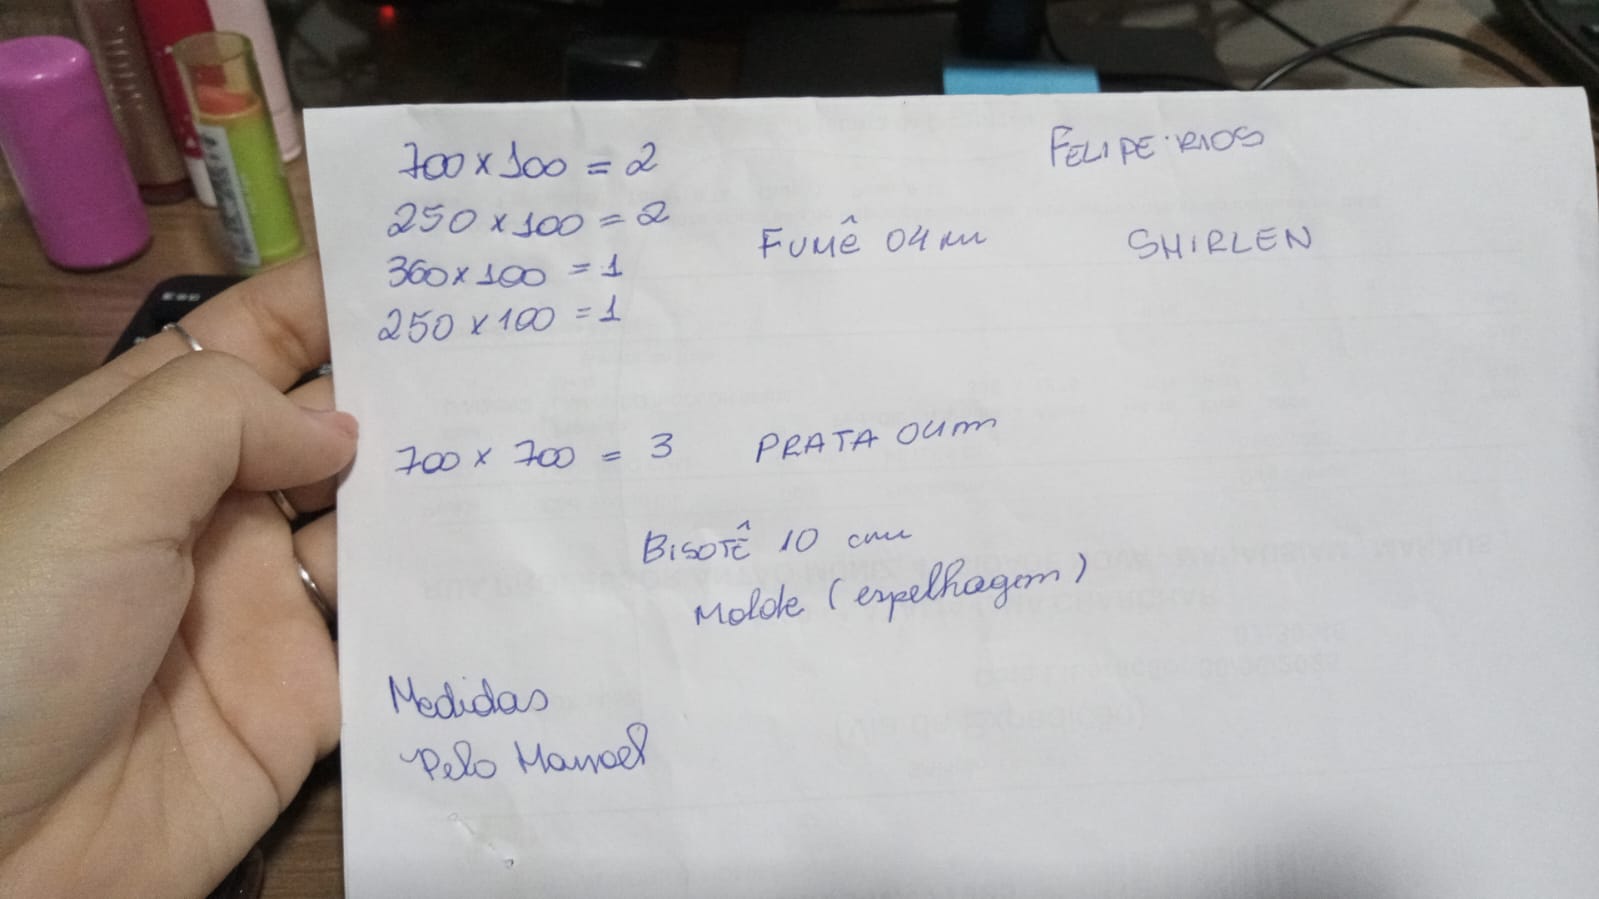 700 x 100 = 2
FELIPE RIOS
250 x 100 = 2
FUMÊ 04 mm
SHIRLEN
360 x 100 = 1
250 x 100 = 1
700 x 700 = 3
PRATA 04mm
BISOTÊ 10 cm
Molde (espelhagem)
Medidas
Pelo Manoel
ESC